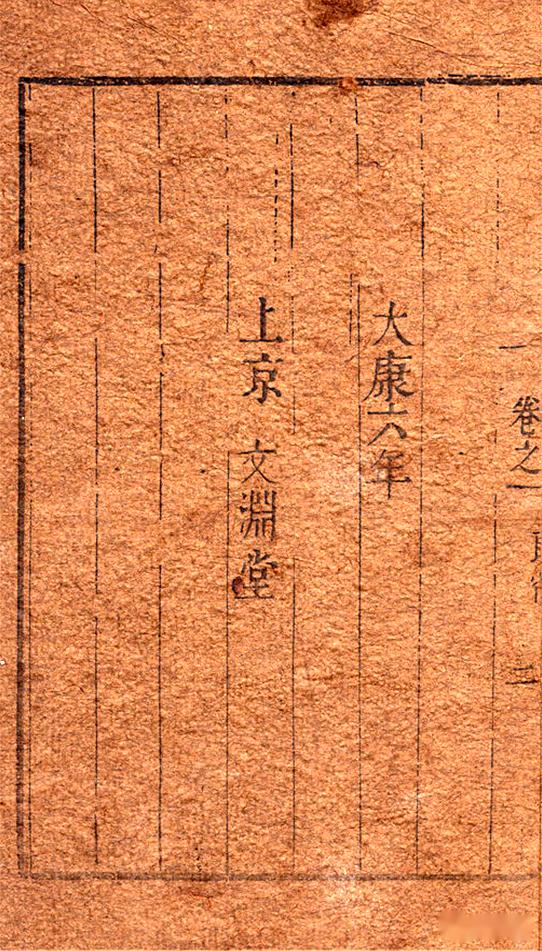 卷之一
大康六年
上京 文淵堂